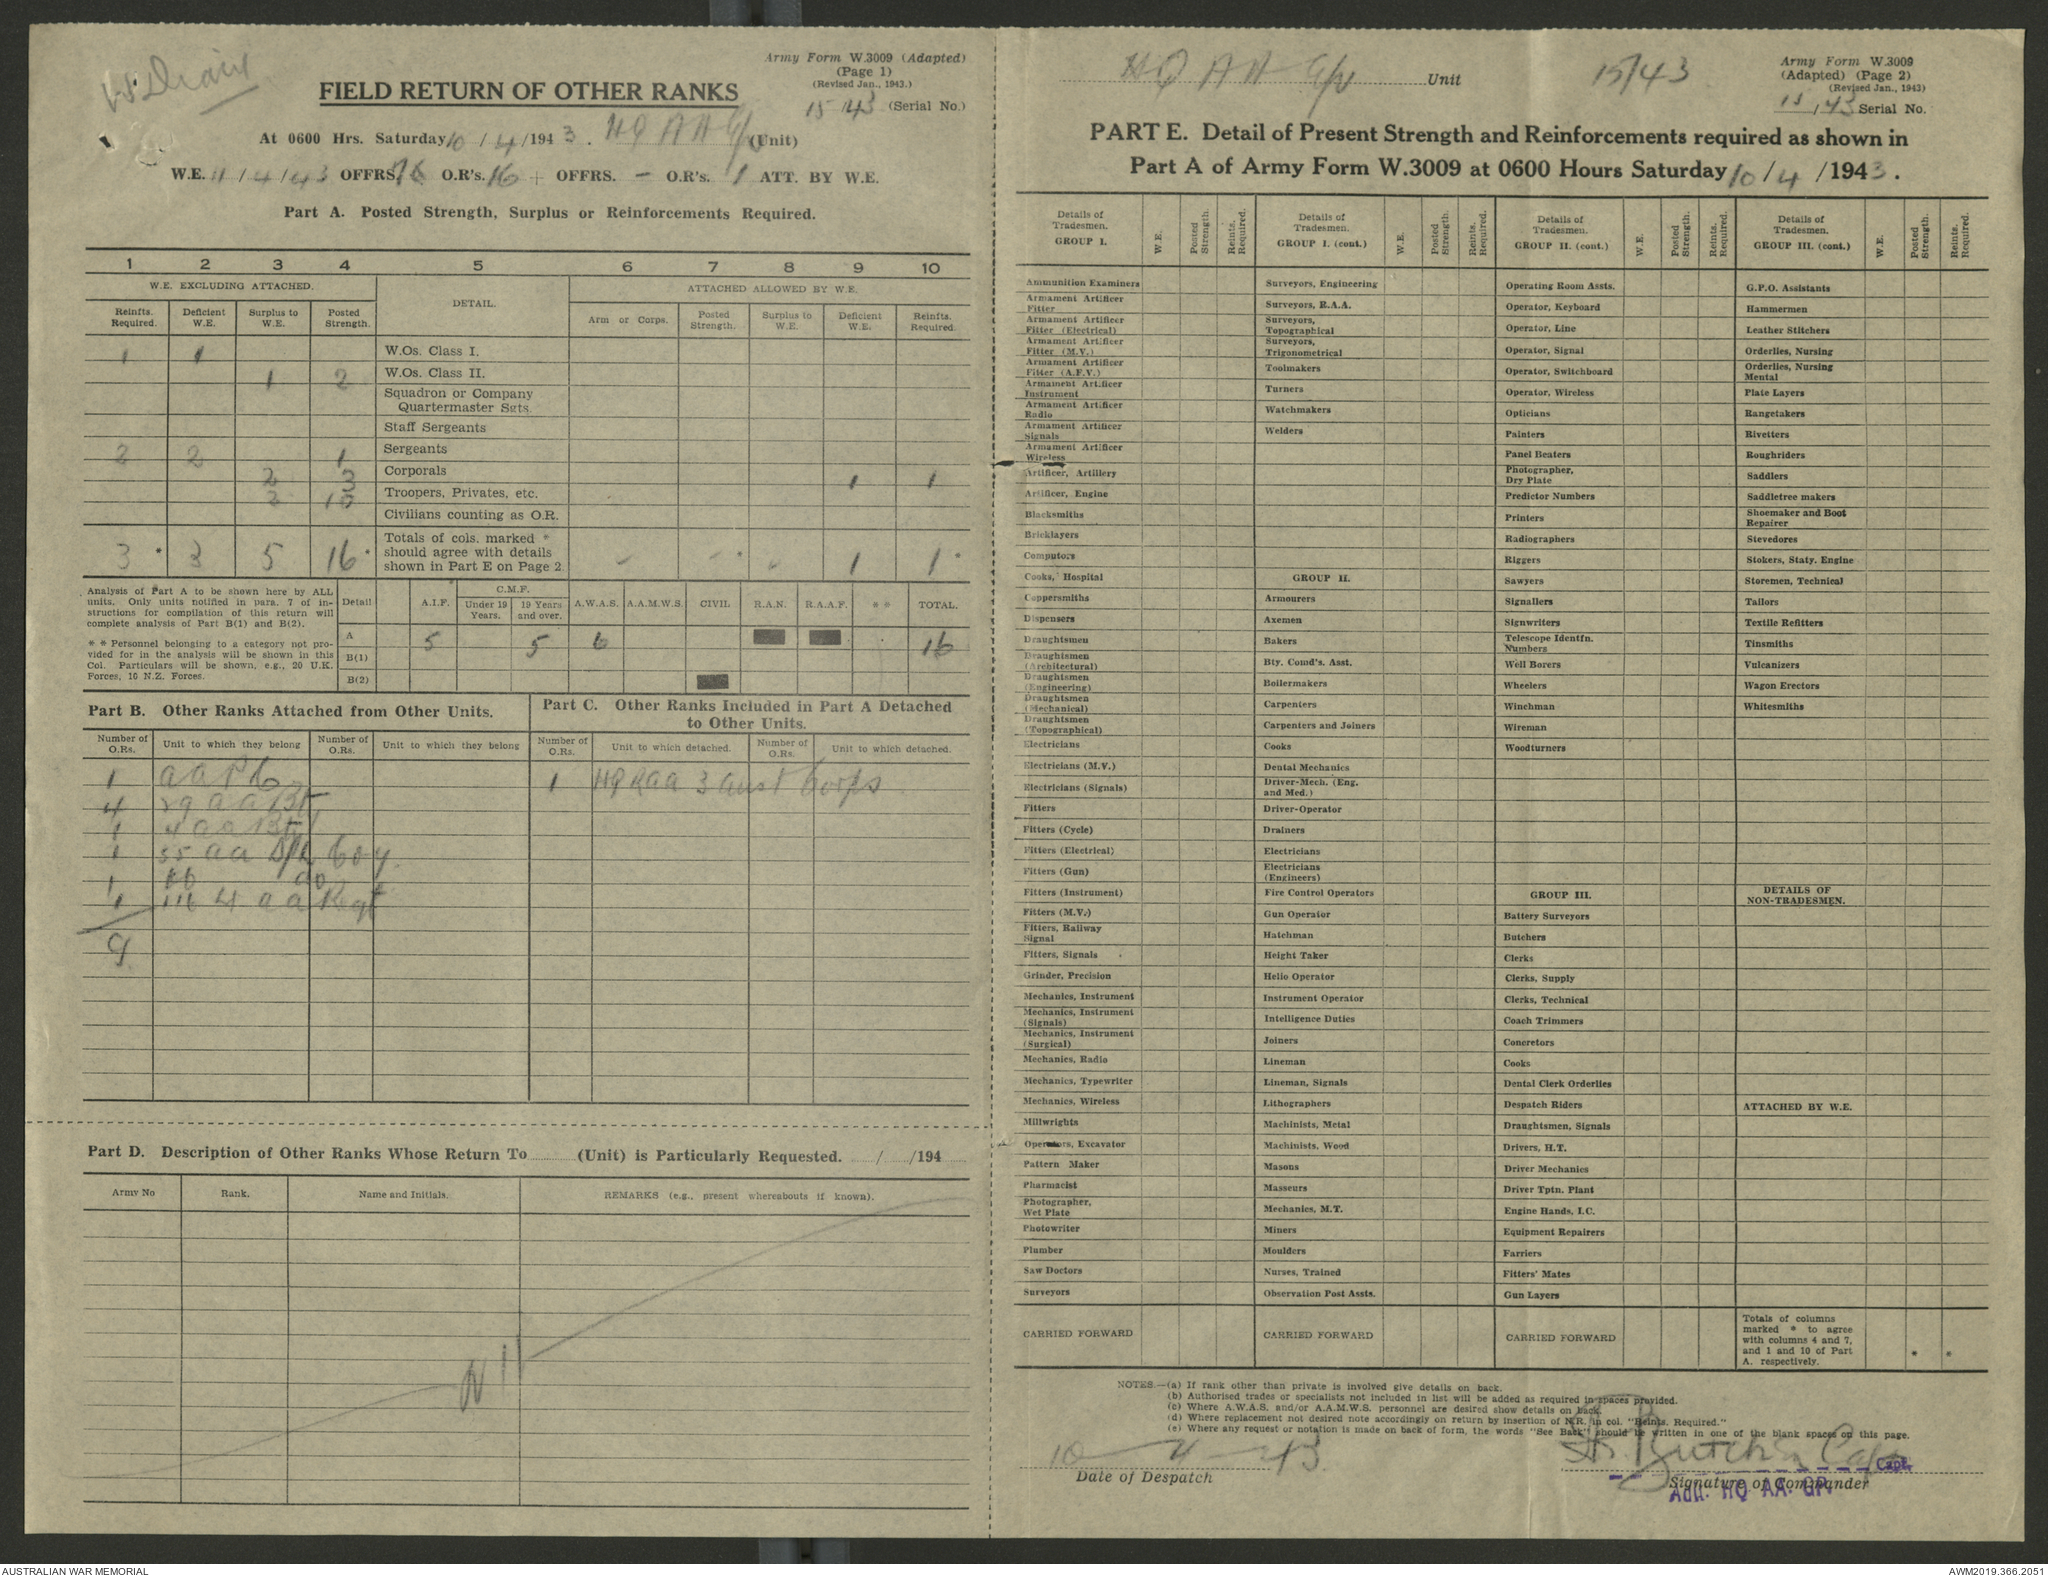 W. Diary
Army Form W.3009 (Adapted)
(Page 1)
(Revised Jan., 1943.)
15/43 (Serial No.)
FIELD RETURN OF OTHER RANKS
At 0600 Hrs. Saturday 10/4/1943. HQ AA Gp (Unit)
W.E. 11/4/43 OFFRS. O.R's. 16 + OFFRS. - O.R's. 1 ATT. BY W.E.
Part A. Posted Strength, Surplus or Reinforcements Required.
1 2 3 4 5 6 7 8 9 10
W.E. EXCLUDING ATTACHED. DETAIL. ATTACHED ALLOWED BY W.E.
Reinfts. Required. Deficient W.E. Surplus to W.E. Posted Strength. Arm or Corps. Posted Strength. Surplus to W.E. Deficient W.E. Reinfts. Required.
1 1 W.Os. Class I.
1 2 W.Os. Class II.
Squadron or Company
Quartermaster Sgts.
Staff Sergeants
2 2 1 Sergeants
2 3 Corporals 1 1
2 10 Troopers, Privates, etc.
Civilians counting as O.R.
3 * 3 5 16 * Totals of cols. marked * should agree with details shown in Part E on Page 2. - - * - 1 1 *
Analysis of Part A to be shown here by ALL
units. Only units notified in para. 7 of in-
structions for compilation of this return will
complete analysis of Part B(1) and B(2).
* * Personnel belonging to a category not pro-
vided for in the analysis will be shown in this
Col. Particulars will be shown, e.g., 20 U.K.
Forces, 10 N.Z. Forces.
Detail A.I.F. C.M.F. Under 19 Years. 19 Years and over. A.W.A.S. A.A.M.W.S. CIVIL R.A.N. R.A.A.F. * * TOTAL.
A 5 5 6 16
B(1)
B(2)
Part B. Other Ranks Attached from Other Units.
Number of O.Rs. Unit to which they belong Number of O.Rs. Unit to which they belong
1 AAPC
4 29 AA Bty
1 4 AA Bty
1 55 AA S/L Coy
1 66 do
1 111 4 AA Regt
9
Part C. Other Ranks Included in Part A Detached
to Other Units.
Number of O.Rs. Unit to which detached. Number of O.Rs. Unit to which detached.
1 HQ RAA 3 Aust Corps
Part D. Description of Other Ranks Whose Return To ........ (Unit) is Particularly Requested. / /194
Army No Rank. Name and Initials. REMARKS (e.g., present whereabouts if known).
Nil
HQ AA Gp Unit 15/43
Army Form W.3009
(Adapted) (Page 2)
(Revised Jan., 1943)
15/43 Serial No.
PART E. Detail of Present Strength and Reinforcements required as shown in
Part A of Army Form W.3009 at 0600 Hours Saturday 10/4/1943.
Details of Tradesmen. GROUP I. W.E. Posted Strength. Reints. Required.
Ammunition Examiners
Armament Artificer Fitter
Armament Artificer Fitter (Electrical)
Armament Artificer Fitter (M.V.)
Armament Artificer Fitter (A.F.V.)
Armament Artificer Instrument
Armament Artificer Radio
Armament Artificer Signals
Armament Artificer Wireless
Artificer, Artillery
Artificer, Engine
Blacksmiths
Bricklayers
Computors
Cooks, Hospital
Coppersmiths
Dispensers
Draughtsmen
Draughtsmen (Architectural)
Draughtsmen (Engineering)
Draughtsmen (Mechanical)
Draughtsmen (Topographical)
Electricians
Electricians (M.V.)
Electricians (Signals)
Fitters
Fitters (Cycle)
Fitters (Electrical)
Fitters (Gun)
Fitters (Instrument)
Fitters (M.V.)
Fitters, Railway Signal
Fitters, Signals
Grinder, Precision
Mechanics, Instrument
Mechanics, Instrument (Signals)
Mechanics, Instrument (Surgical)
Mechanics, Radio
Mechanics, Typewriter
Mechanics, Wireless
Millwrights
Operators, Excavator
Pattern Maker
Pharmacist
Photographer, Wet Plate
Photowriter
Plumber
Saw Doctors
Surveyors
CARRIED FORWARD
Details of Tradesmen. GROUP I. (cont.) W.E. Posted Strength. Reints. Required.
Surveyors, Engineering
Surveyors, R.A.A.
Surveyors, Topographical
Surveyors, Trigonometrical
Toolmakers
Turners
Watchmakers
Welders
GROUP II.
Armourers
Axemen
Bakers
Bty. Comd's. Asst.
Boilermakers
Carpenters
Carpenters and Joiners
Cooks
Dental Mechanics
Driver-Mech. (Eng. and Med.)
Driver-Operator
Drainers
Electricians
Electricians (Engineers)
Fire Control Operators
Gun Operator
Hatchman
Height Taker
Helio Operator
Instrument Operator
Intelligence Duties
Joiners
Lineman
Lineman, Signals
Lithographers
Machinists, Metal
Machinists, Wood
Masons
Masseurs
Mechanics, M.T.
Miners
Moulders
Nurses, Trained
Observation Post Assts.
CARRIED FORWARD
Details of Tradesmen. GROUP II. (cont.) W.E. Posted Strength. Reints. Required.
Operating Room Assts.
Operator, Keyboard
Operator, Line
Operator, Signal
Operator, Switchboard
Operator, Wireless
Opticians
Painters
Panel Beaters
Photographer, Dry Plate
Predictor Numbers
Printers
Radiographers
Riggers
Sawyers
Signallers
Signwriters
Telescope Identfn. Numbers
Well Borers
Wheelers
Winchman
Wireman
Woodturners
GROUP III.
Battery Surveyors
Butchers
Clerks
Clerks, Supply
Clerks, Technical
Coach Trimmers
Concretors
Cooks
Dental Clerk Orderlies
Despatch Riders
Draughtsmen, Signals
Drivers, H.T.
Driver Mechanics
Driver Tptn. Plant
Engine Hands, I.C.
Equipment Repairers
Farriers
Fitters' Mates
Gun Layers
CARRIED FORWARD
Details of Tradesmen. GROUP III. (cont.) W.E. Posted Strength. Reints. Required.
G.P.O. Assistants
Hammermen
Leather Stitchers
Orderlies, Nursing
Orderlies, Nursing Mental
Plate Layers
Rangetakers
Rivetters
Roughriders
Saddlers
Saddletree makers
Shoemaker and Boot Repairer
Stevedores
Stokers, Staty. Engine
Storemen, Technical
Tailors
Textile Refitters
Tinsmiths
Vulcanizers
Wagon Erectors
Whitesmiths
DETAILS OF NON-TRADESMEN.
ATTACHED BY W.E.
Totals of columns marked * to agree with columns 4 and 7, and 1 and 10 of Part A. respectively. * *
NOTES.—(a) If rank other than private is involved give details on back.
(b) Authorised trades or specialists not included in list will be added as required in spaces provided.
(c) Where A.W.A.S. and/or A.A.M.W.S. personnel are desired show details on back.
(d) Where replacement not desired note accordingly on return by insertion of N.R. in col. "Reints. Required."
(e) Where any request or notation is made on back of form, the words "See Back" should be written in one of the blank spaces on this page.
10-4-43
Date of Despatch
Butcher Capt
Capt.
Signature of Commander
Adjt. HQ AA. GP.
AUSTRALIAN WAR MEMORIAL
AWM2019.366.2051